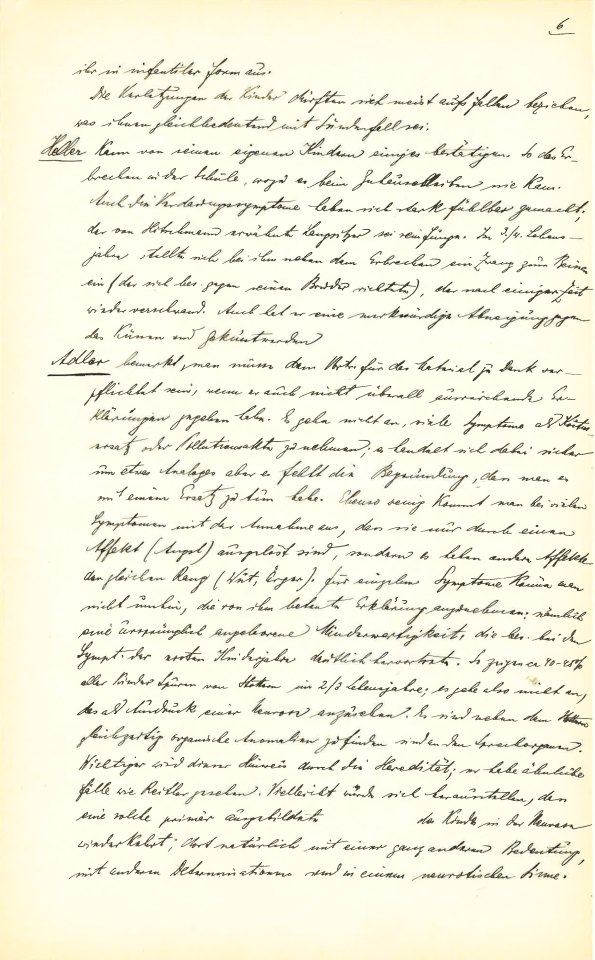 6
ihr in infantiler Form aus.
Die Verletzungen der Kinder dürften sich meist aufs fallen beziehen,
was ihnen gleichbedeutend mit Sündenfall sei.
Heller kann von seinen eigenen Kindern einiges bestätigen. So das Er-
brechen in der Schule, wozu es beim Zuhausebleiben nie kam.
Auch die Verdauungssymptome haben sich stark fühlbar gemacht;
der von Hitschmann erwähnte sei sein Junge. Im 3./4. Lebens-
jahre stellte sich bei ihm neben dem Erbrechen ein Zwang zum
ein (der sich bes gegen seinen Bruder richtete), der nach einiger Zeit
wieder verschwand. Auch hat er eine merkwürdige Abneigung gegen
das Küssen und Geküsstwerden
Adler bemerkt, man müsse dem Vortr. für das Material zu Dank ver-
pflichtet sein, wenn er auch nicht überall ausreichende Er-
klärungen gegeben habe. Es gehe nicht an, viele Symptome als Koitus-
ersatz oder Pollutionsakte zu nehmen; es handelt sich dabei sicher
um etwas Analoges aber es fehlt die Begründung, dass man es
mit einem Ersatz zu tun habe. Ebenso wenig kommt man bei vielen
Symptomen mit der Annahme aus, dass sie nur durch einen
Affekt (Angst) ausgelöst sind, sondern es haben andere Affekte
den gleichen Rang (Wut, Ärger). Für einzelne Symptome könne man
nicht umhin, die von ihm betonte Erklärung anzunehmen: nämlich
eine ursprünglich angeborene Minderwertigkeit, die bes. bei den
Sympt. der ersten Kinderjahre deutlich hervortrete. So zeigen ca 40-45%
aller Kinder Spuren von Stottern im 2/3 Lebensjahre; es gehe also nicht an,
das als Ausdruck einer Neurose anzusehen. Es sind neben dem Stottern
gleichzeitig organische Anomalien zu finden sind an den Sprachorganen.
Wichtiger wird dieser Hinweis durch die Heredität; er habe ähnliche
Fälle wie Reitler gesehen. Vielleicht würde sich herausstellen, dass
eine solche primär ausgebildete des Kindes in der Neurose
wiederkehrt; dort natürlich mit einer ganz anderen Bedeutung,
mit anderen Determinationen und in einem neurotischen Sinne.